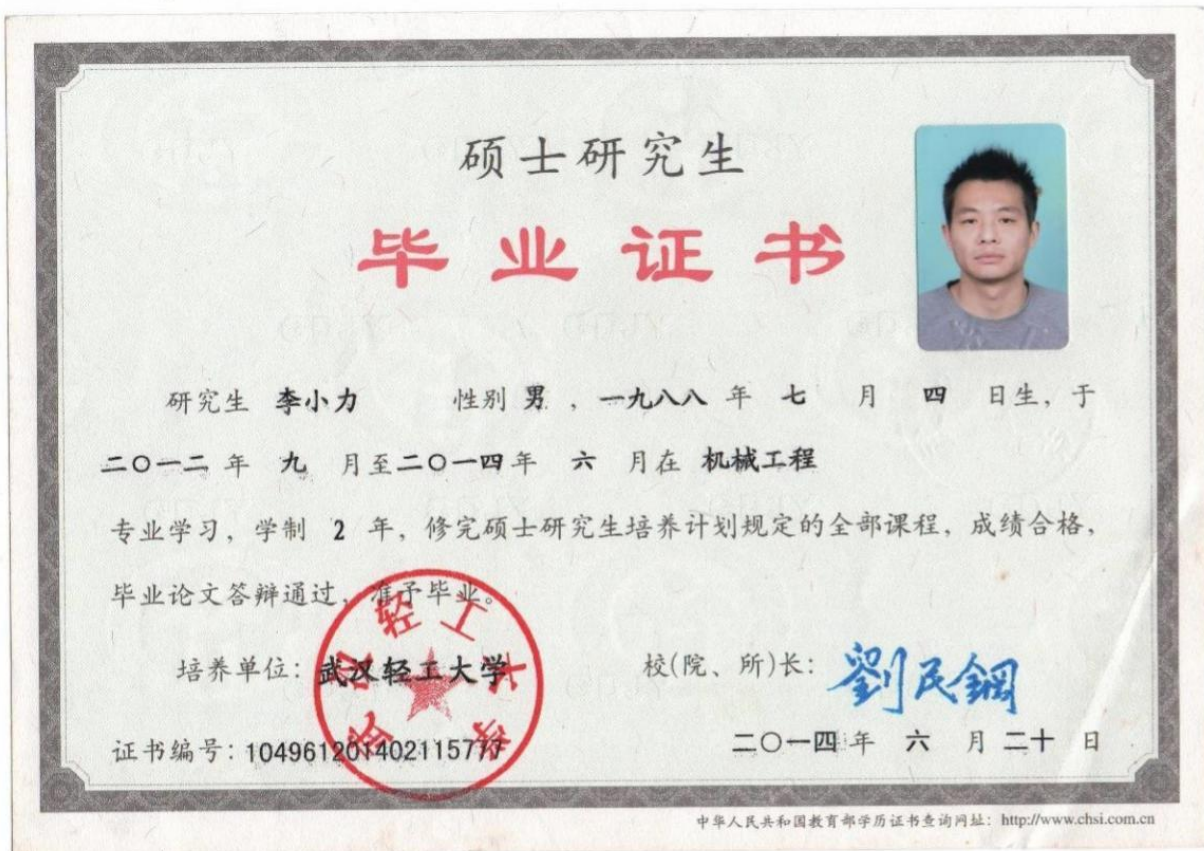 硕士研究生
毕业证书
研究生 李小力 性别 男 ，一九八八 年 七 月 四 日生，于
二〇一二 年 九 月至二〇一四年 六 月在 机械工程
专业学习，学制 2 年，修完硕士研究生培养计划规定的全部课程，成绩合格，
毕业论文答辩通过，准予毕业。
培养单位：武汉轻工大学
校(院、所)长：劉民鋼
武汉轻工大学
证书编号：104961201402115777
二〇一四年 六 月 二十 日
中华人民共和国教育部学历证书查询网址：http://www.chsi.com.cn